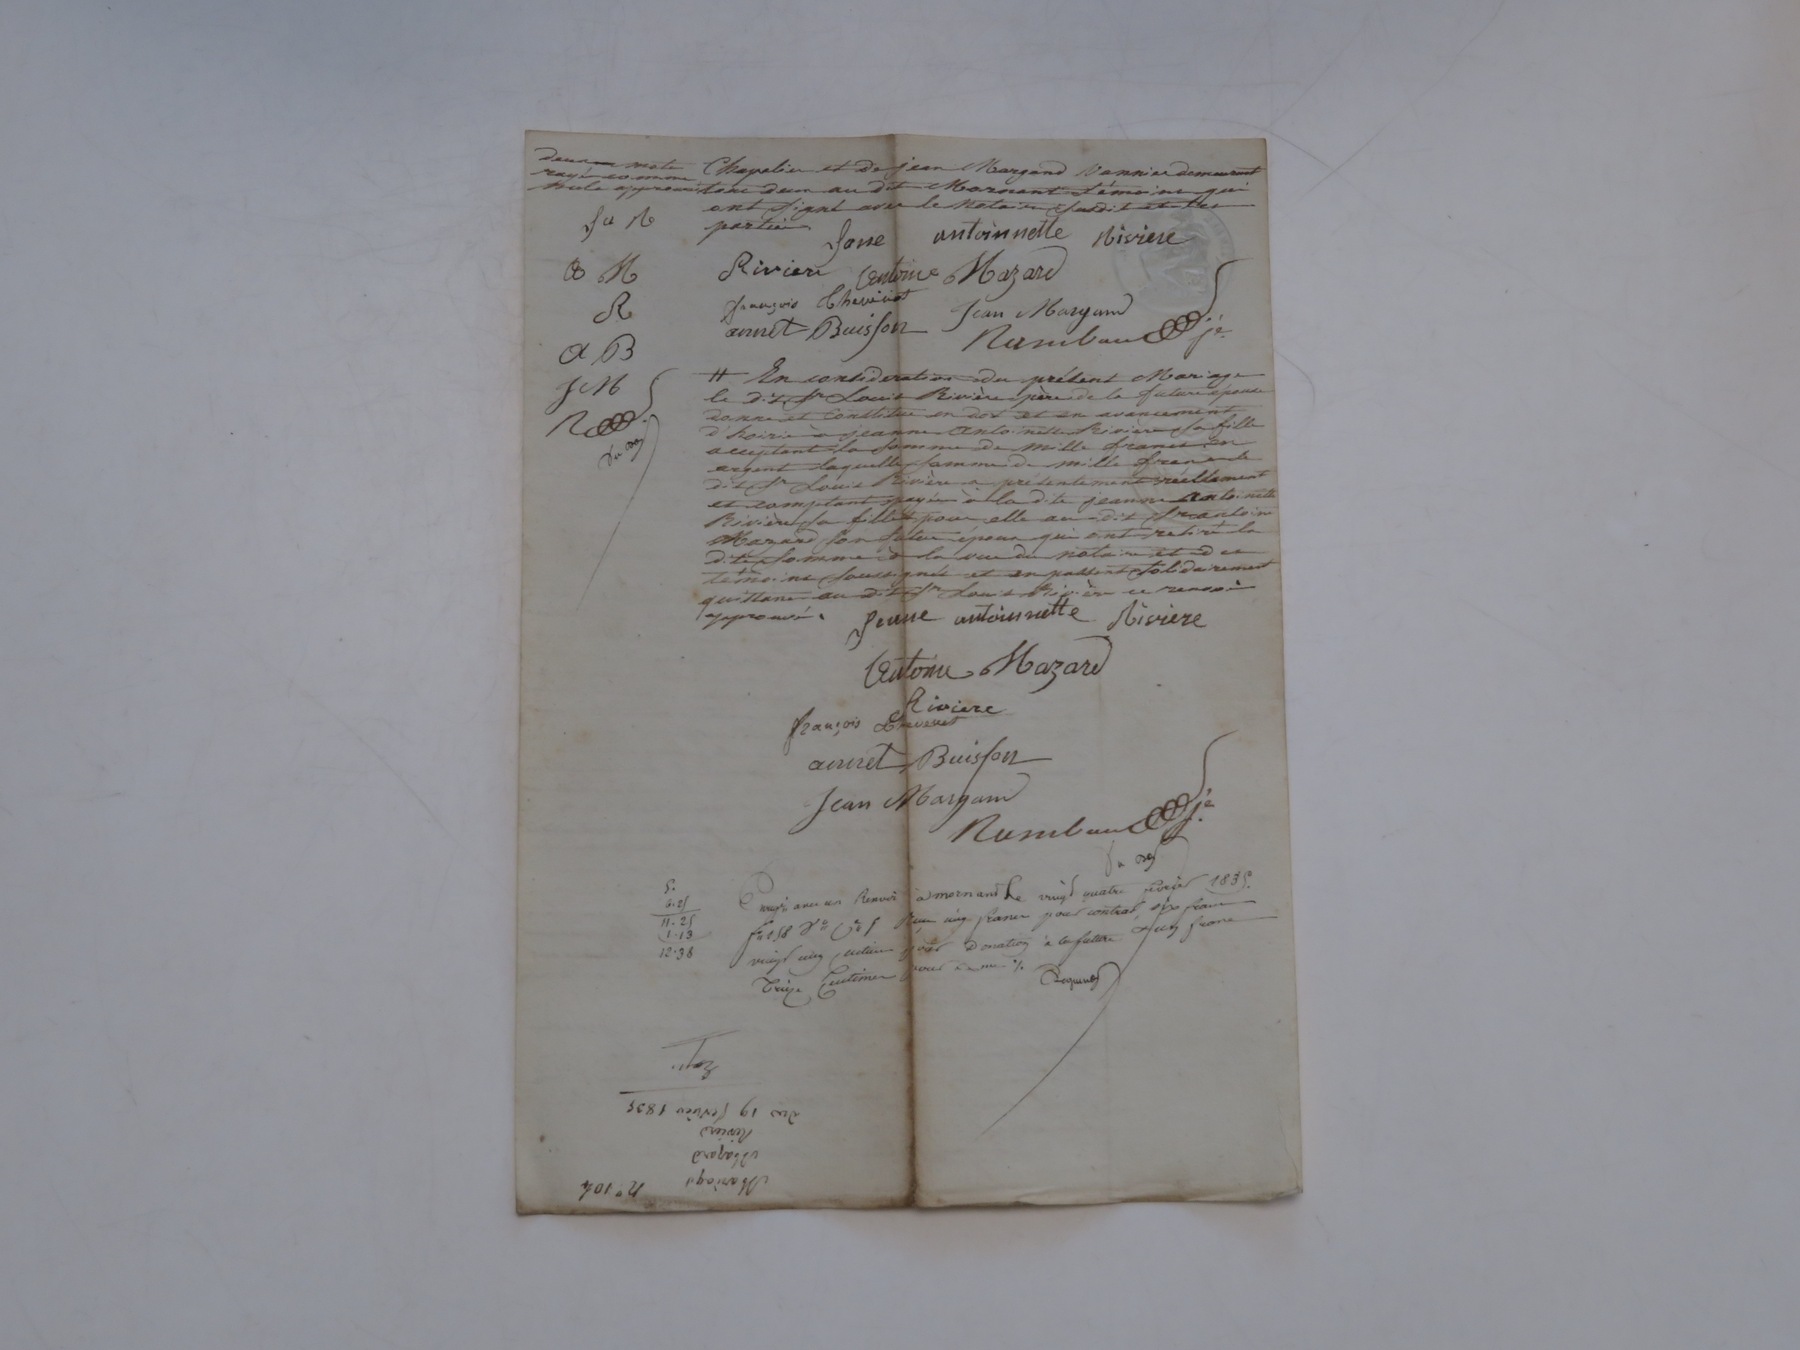 deux mots
rayé comme
nuls approuvé
Chapelier et de jean Margand Vannier demeurant
tous deux au dit Mornant témoins qui
ont signé avec le notaire susdit et les
parties
Jane antoinnette Riviere
Riviere Antoine Mazard
françois Chevenet
Jean Margand
annet Buisson
Rambau je
J a R
A M
R
A B
J M
R
# En consideration du présent Mariage
le dit Sr Louis Rivière père de la future épouse
donne et constitue en dot et en avancement
d'hoirie à jeanne Antoinette Rivière sa fille
acceptant la somme de mille francs en
argent laquelle somme de mille francs le
dit Sr Louis Rivière a présentement réellement
et comptant payée à la dite jeanne Antoinette
Rivière sa fille pour elle au dit Sr antoine
Mazard son futur époux qui ont retiré la
dite somme à la vue du notaire et des
témoins soussignés et en passent solidairement
quittance au dit Sr Louis Rivière ce renvoi
approuvé.
Jeane antoinnette Riviere
Antoine Mazard
Riviere
françois Chevenet
annet Buisson
Jean Margand
Rambau je
5.
6.25
11.25
1.13
12.38
Enregistré avec un Renvoi à mornant le vingt quatre février 1835.
f° 158 Reçu cinq francs pour contrat, six francs
vingt cinq centimes pour Donation à la future & un franc
Treize Centimes pour
n° 104
Mariage
Mazard
Rivière
Du 19 février 1835